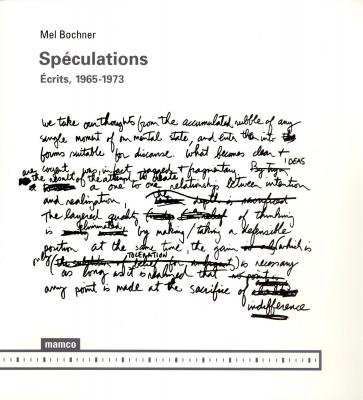 Mel Bochner
Spéculations
Écrits, 1965-1973
we take our thoughts from the accumulated rubble of any
single moment of mental state, and enter them into
forms suitable for discourse. What becomes clear +
IDEAS
are the result of the attempt to create
a one to one relationship between intention
and realization.
The layered quality of thinking
is eliminated by making/taking a defensible
position at the same time the gain (which is
TOLERATION
only ) is necessary
as long as it is realized that
any point is made at the sacrifice of
indifference
mamco